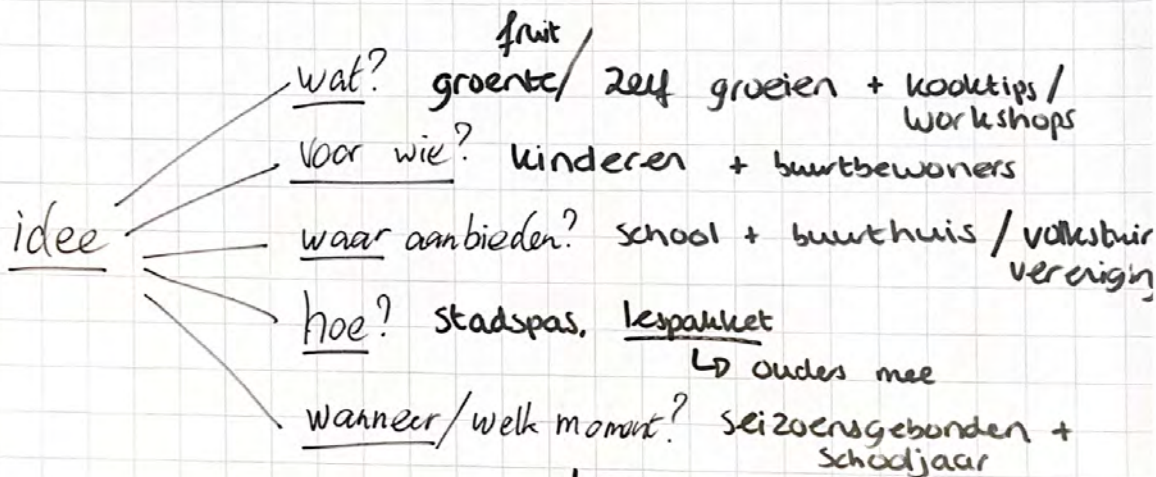 fruit
wat? groente/ zelf groeien + kooktips/
workshops
voor wie? kinderen + buurtbewoners
idee
waar aanbieden? school + buurthuis / volkstuin
verenigin
hoe? stadspas, lespakket
↳ ouders mee
wanneer/welk moment? seizoensgebonden +
schooljaar